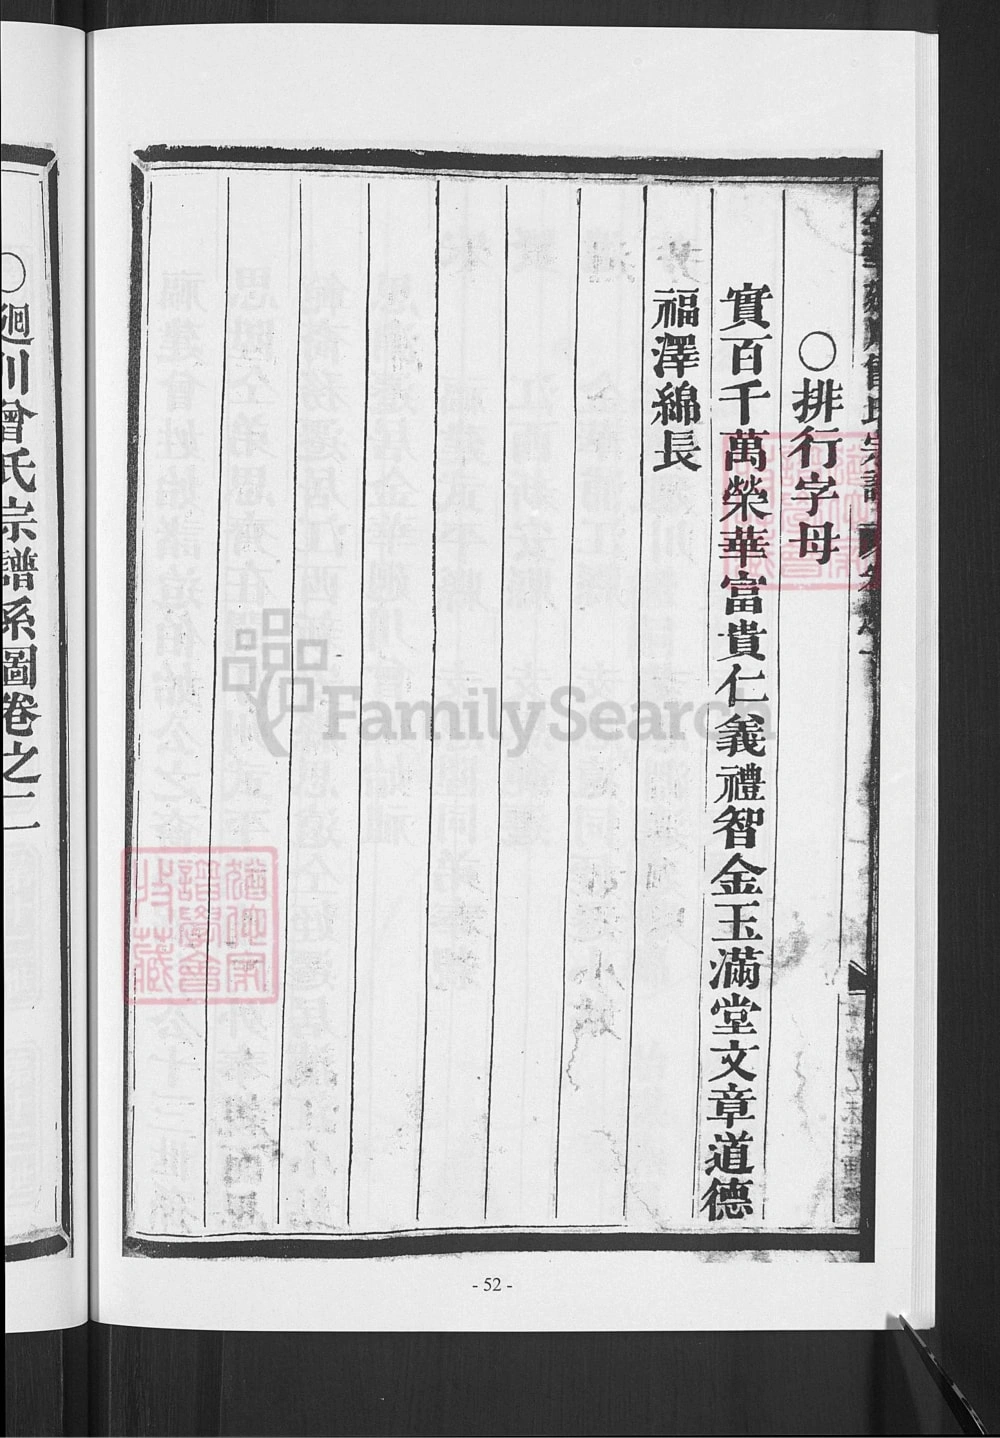 ○排行字母
實百千萬榮華富貴仁義禮智金玉滿堂文章道德
福澤綿長
○廻川曾氏宗譜系圖卷之二
譜學會
收藏
FamilySearch
- 52 -